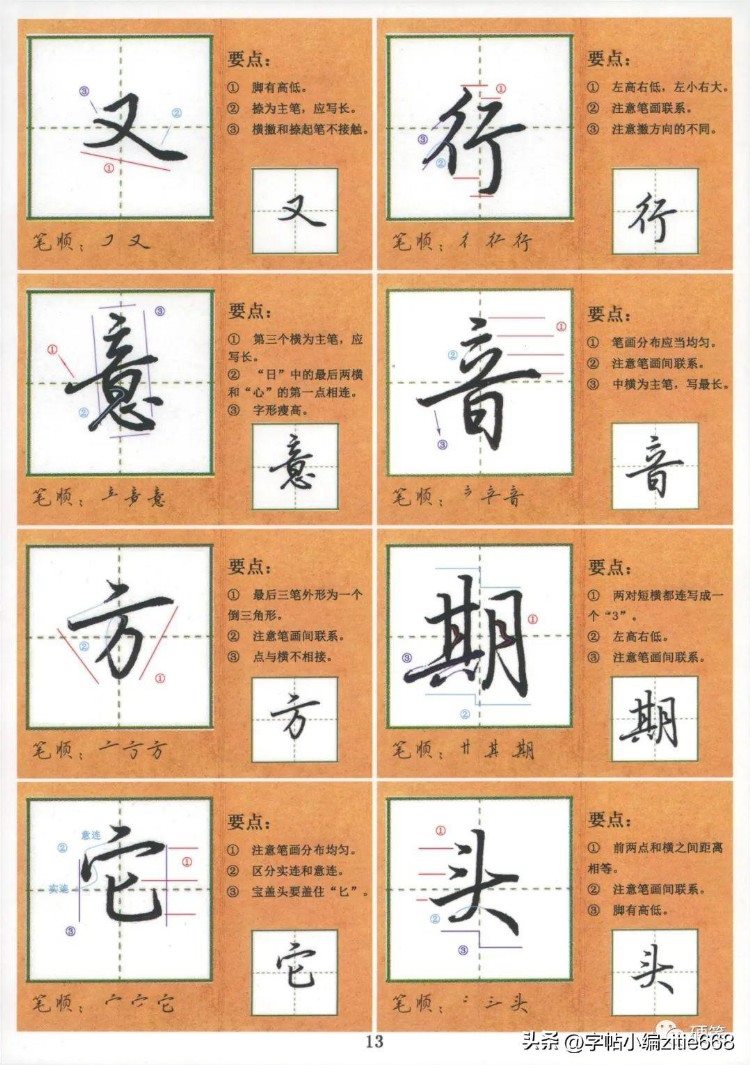 又
③
②
①
要点：
① 脚有高低。
② 捺为主笔，应写长。
③ 横撇和捺起笔不接触。
又
笔顺：㇇又
行
①
③
②
要点：
① 左高右低，左小右大。
② 注意笔画联系。
③ 注意撇方向的不同。
行
笔顺：彳 行
意
③
①
②
要点：
① 第三个横为主笔，应
写长。
② “日”中的最后两横
和“心”的第一点相连。
③ 字形瘦高。
意
笔顺：立 音 意
音
①
②
③
要点：
① 笔画分布应当均匀。
② 注意笔画间联系。
③ 中横为主笔，写最长。
音
笔顺：立 音
方
②
①
要点：
① 最后三笔外形为一个
倒三角形。
② 注意笔画间联系。
③ 点与横不相接。
方
笔顺：亠 方 方
期
①
③
②
要点：
① 两对短横都连写成一
个“3”。
② 左高右低。
③ 注意笔画间联系。
期
笔顺：廿 其 期
它
意连
②
①
实连
③
要点：
① 注意笔画分布均匀。
② 区分实连和意连。
③ 宝盖头要盖住“匕”。
它
笔顺：宀 它
头
①
②
③
要点：
① 前两点和横之间距离
相等。
② 注意笔画间联系。
③ 脚有高低。
头
笔顺：头
13
头条 @字帖小编zitie668